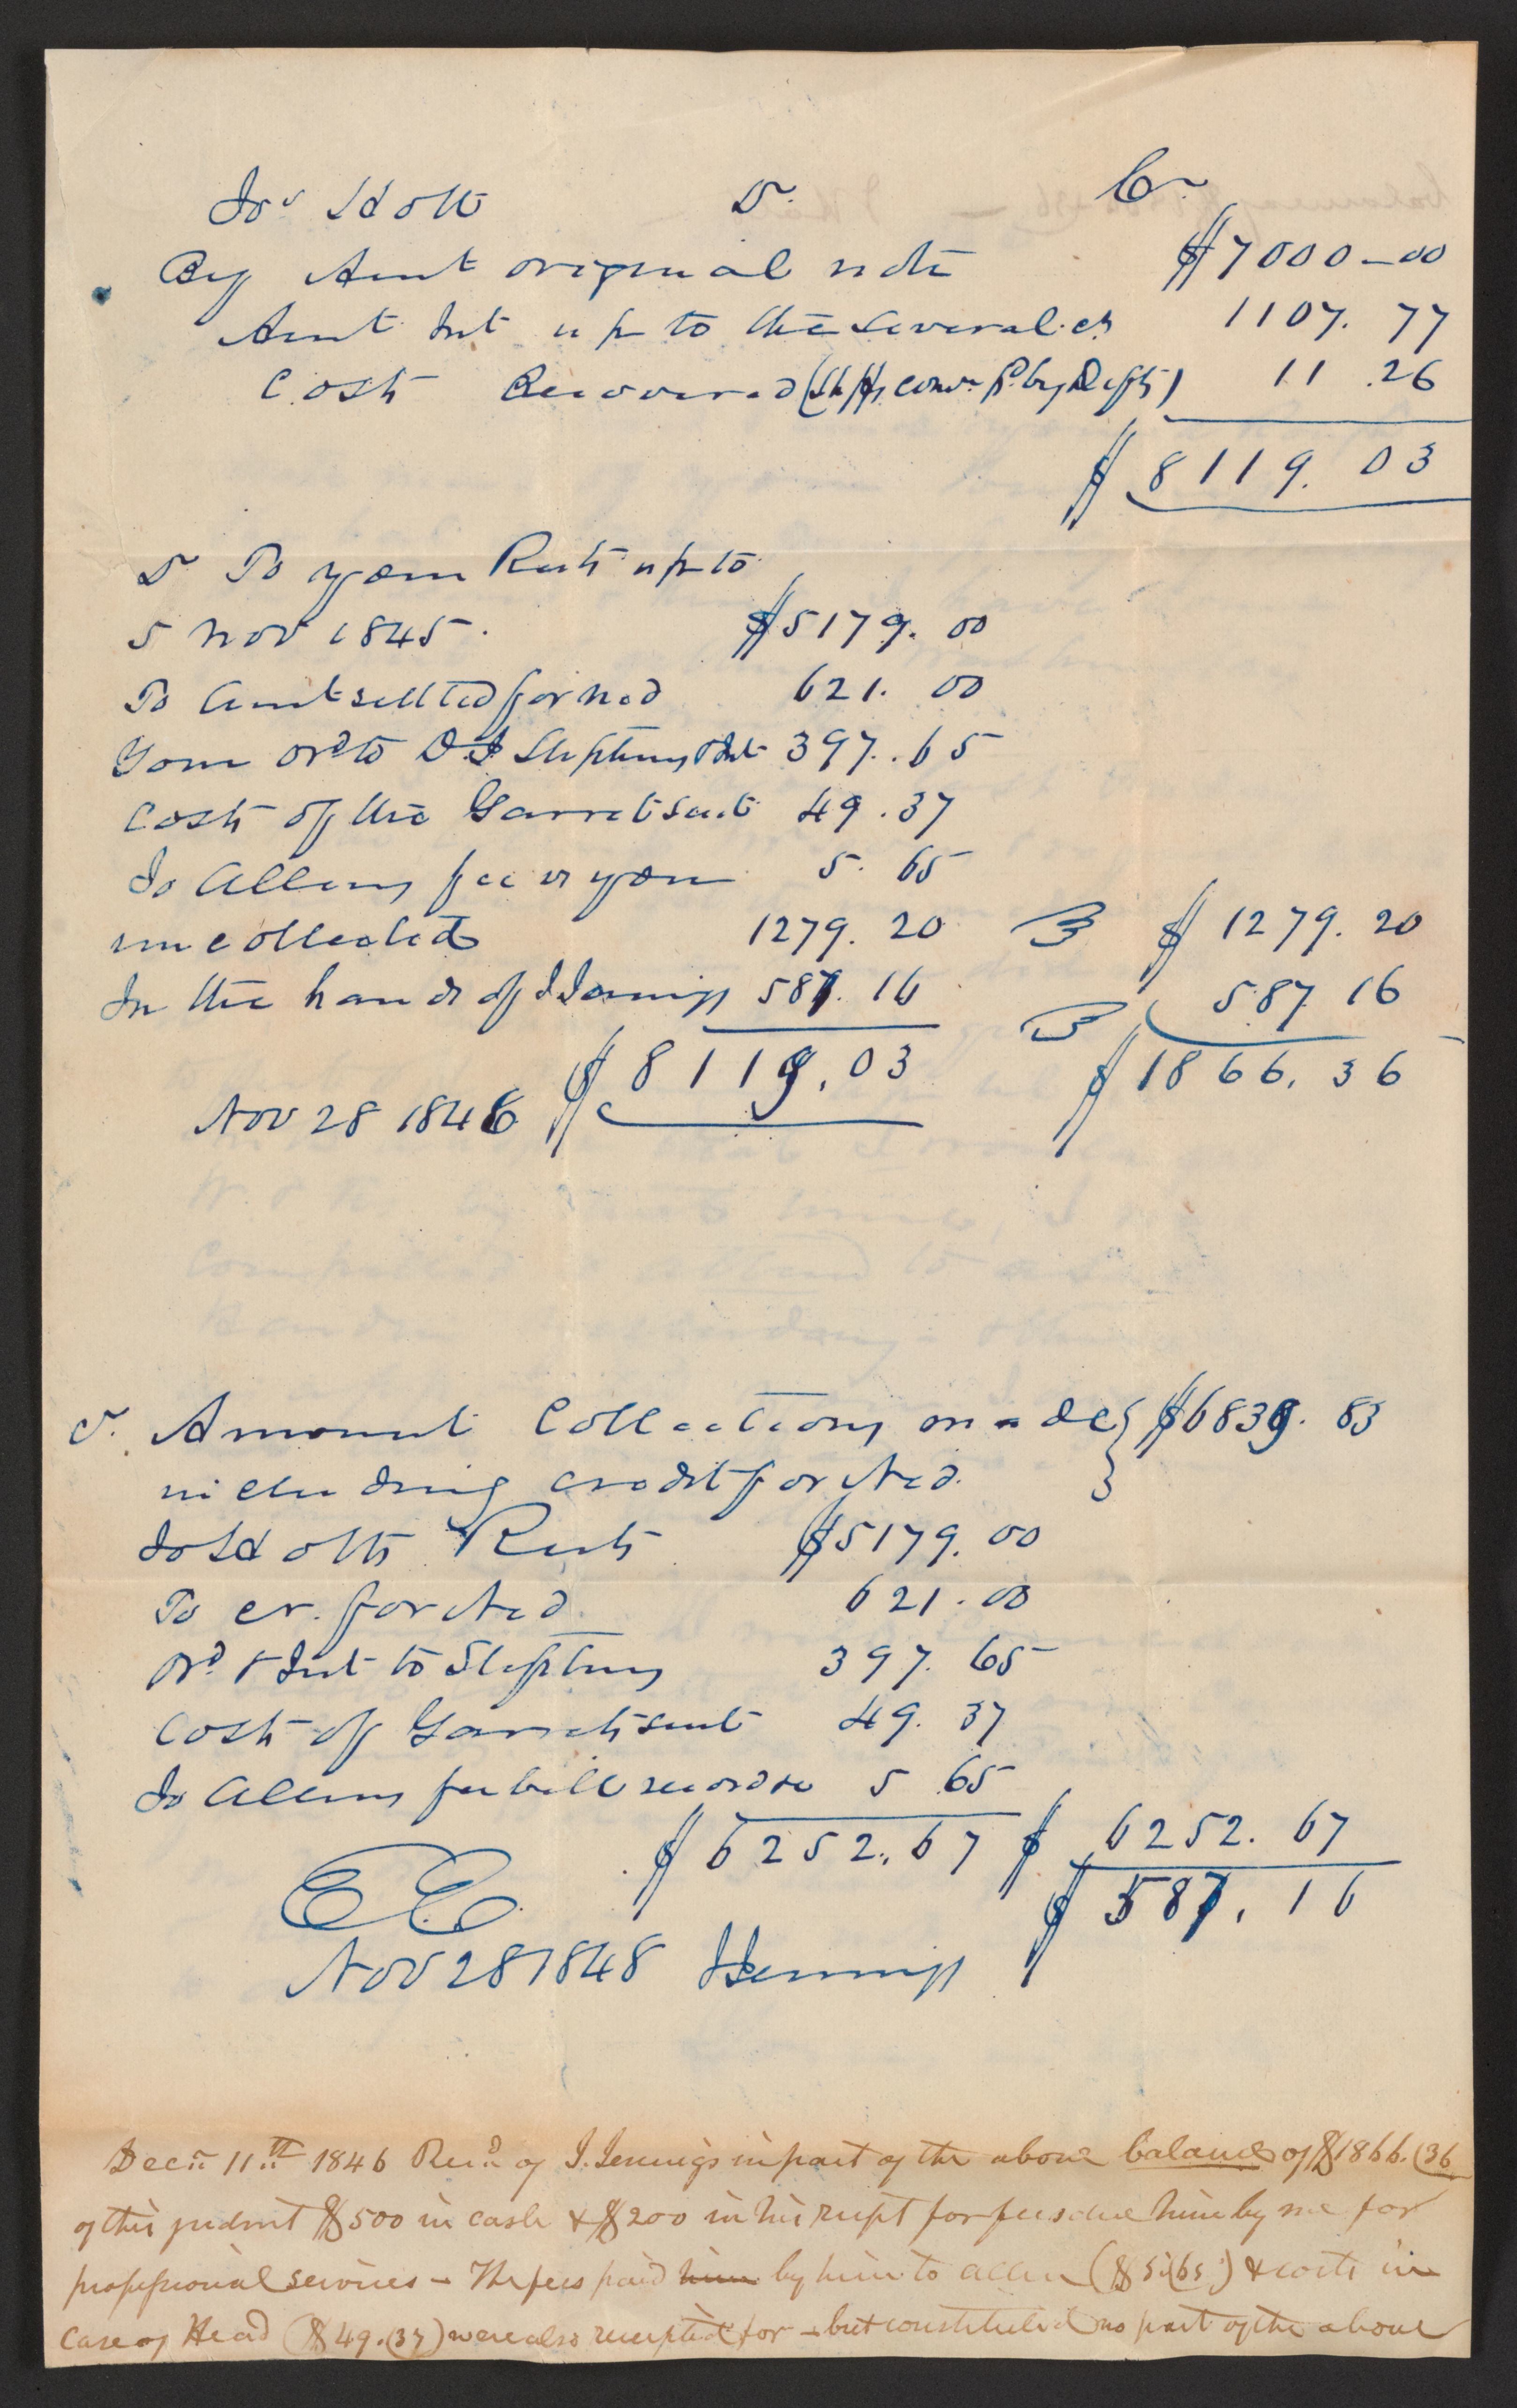 Jos Holt Dr. Cr.
By Amt original note $7000-00
Amt Int up to the several crs 1107.77
Costs Recovered (Shffs comn pd by Defts) 11.26
$8119.03
Dr To your Rects up to
5 Nov 1845. $5179.00
To Amt settled for Ned 621.00
Your Ord to D.J Stephens & Int 397.65
Costs of the Garrett suit 49.37
Jo Allens fee vs you 5.65
uncollected 1279.20 $1279.20
In the hands of J Jennings 587.16 587 16
$8119.03 $1866.36
Nov 28 1846
Cr. Amount Collections made $6839.83
including credit for Ned.
Jo Holts Rects $5179.00
To cr. for Ned 621.00
Ord & Int to Stephens 397.65
Costs of Garrett suit 49.37
Jo Allens fee bill records 5.65
$6252.67 $6252.67
$587.16
E.E.
Nov 28 1848 J Jennings
Decr 11th 1846 Recd of J. Jennings in part of the above balance of $1866.(36
of this judmt $500 in cash & $200 in his recpt for fees due him by me for
professional services – The fees paid him by him to Allen ($5.(65) & costs in
case of Head ($49.(37) were also receipted for – but constituted no part of the above